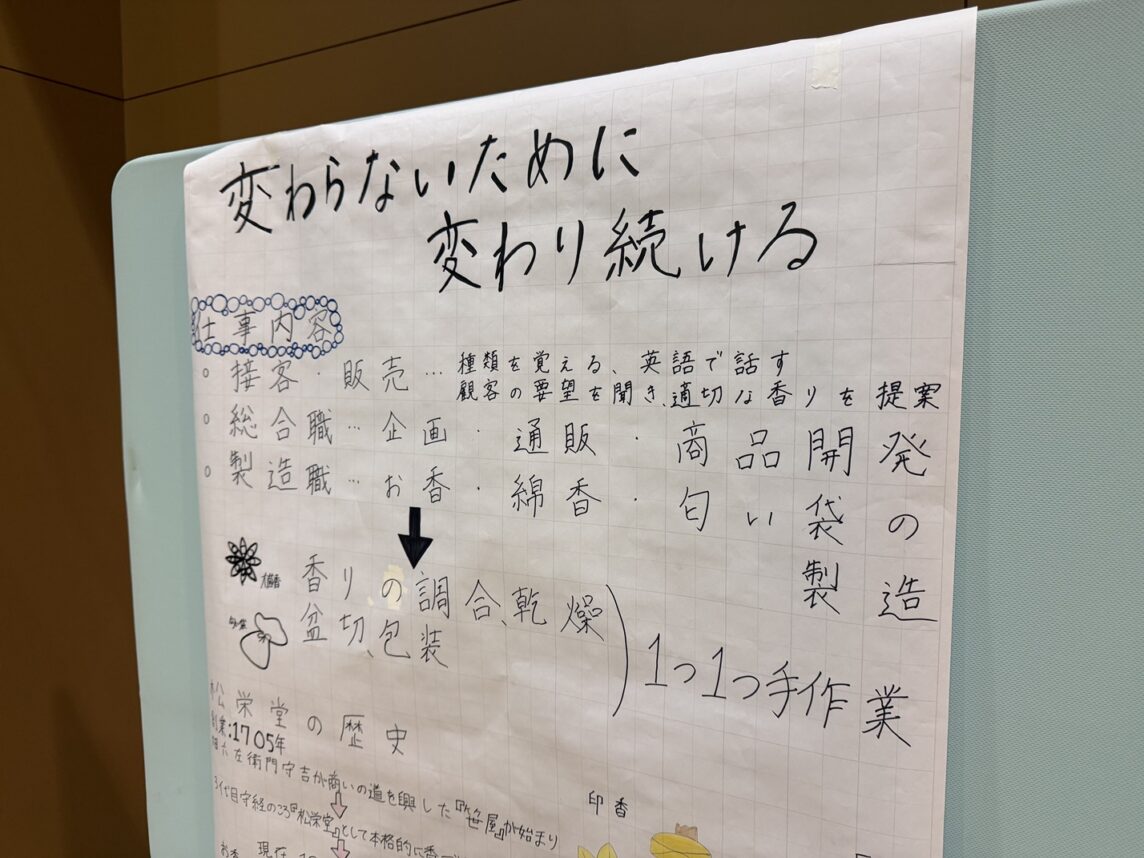 変わらないために
変わり続ける
仕事内容
○ 接客・販売…種類を覚える、英語で話す
観客の要望を聞き、適切な香りを提案
○ 総合職…企画・通販・商品開発
○ 製造職…お香・線香・匂い袋の
製造
香りの調合、乾燥
盆切、包装
1つ1つ手作業
松栄堂の歴史
創業:1705年
左衛門守吉が商いの道を興した『笹屋』が始まり
3代目守経のころ『松栄堂』として本格的に香
印香
現在